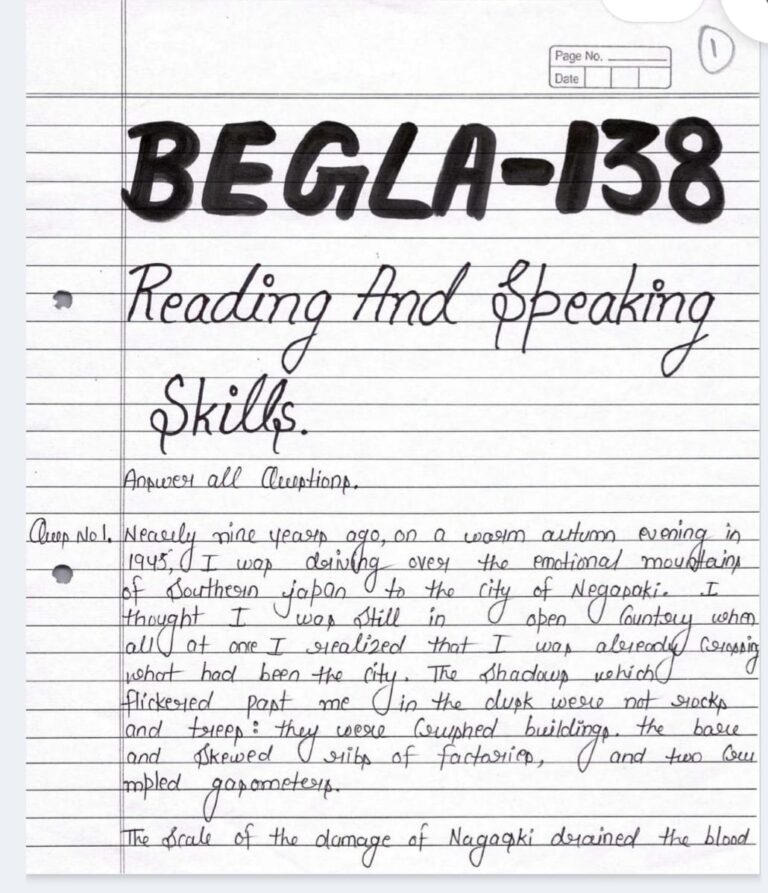 1
Page No.
Date
BEGLA-138
Reading And Speaking
Skills.
Answer all Questions.
Ques No 1. Nearly nine years ago, on a warm autumn evening in
1945, I was driving over the emotional mountains
of Southern japan to the city of Negasaki. I
thought I was still in open Country when
all at one I realized that I was already Crossing
what had been the city. The Shadows which
flickered past me in the dusk were not rocks
and trees: they were Crushed buildings. the bare
and Skewed ribs of factories, and two Cru
mpled gasometers.
The Scale of the damage of Nagaski drained the blood